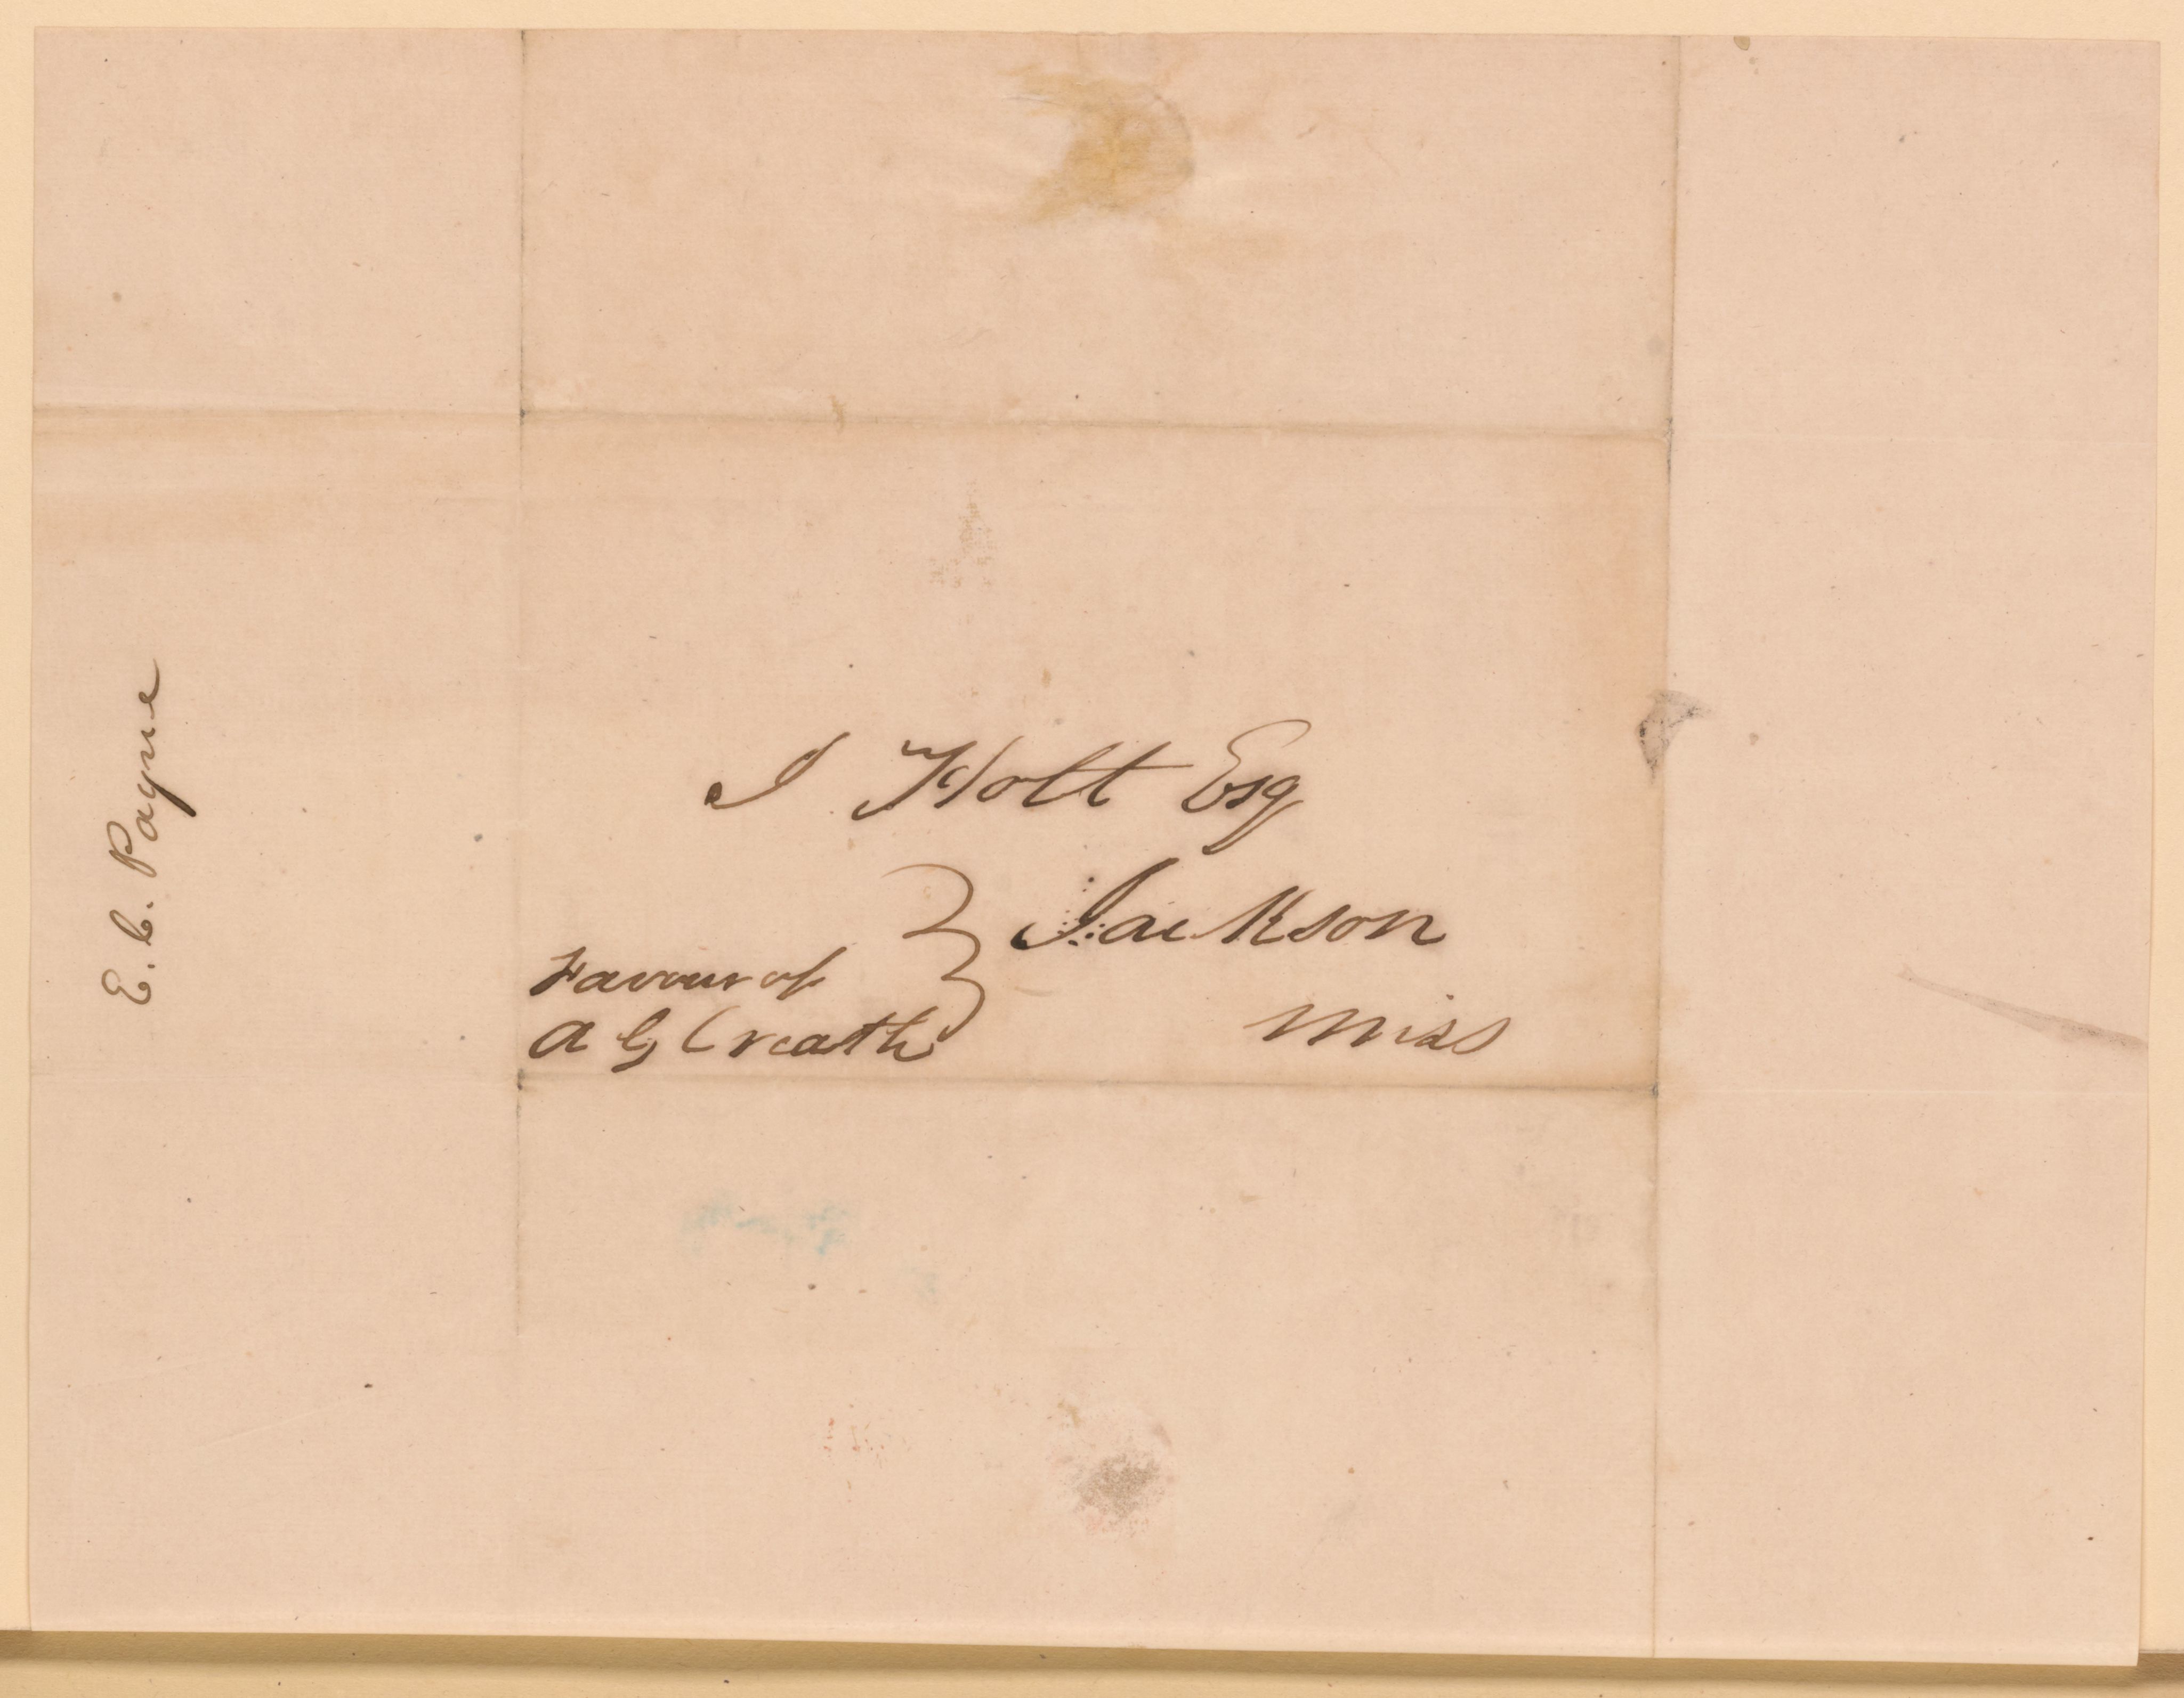 E. C. Payne
J Holt Esq
Jackson
Miss
Favour of
A G Creath